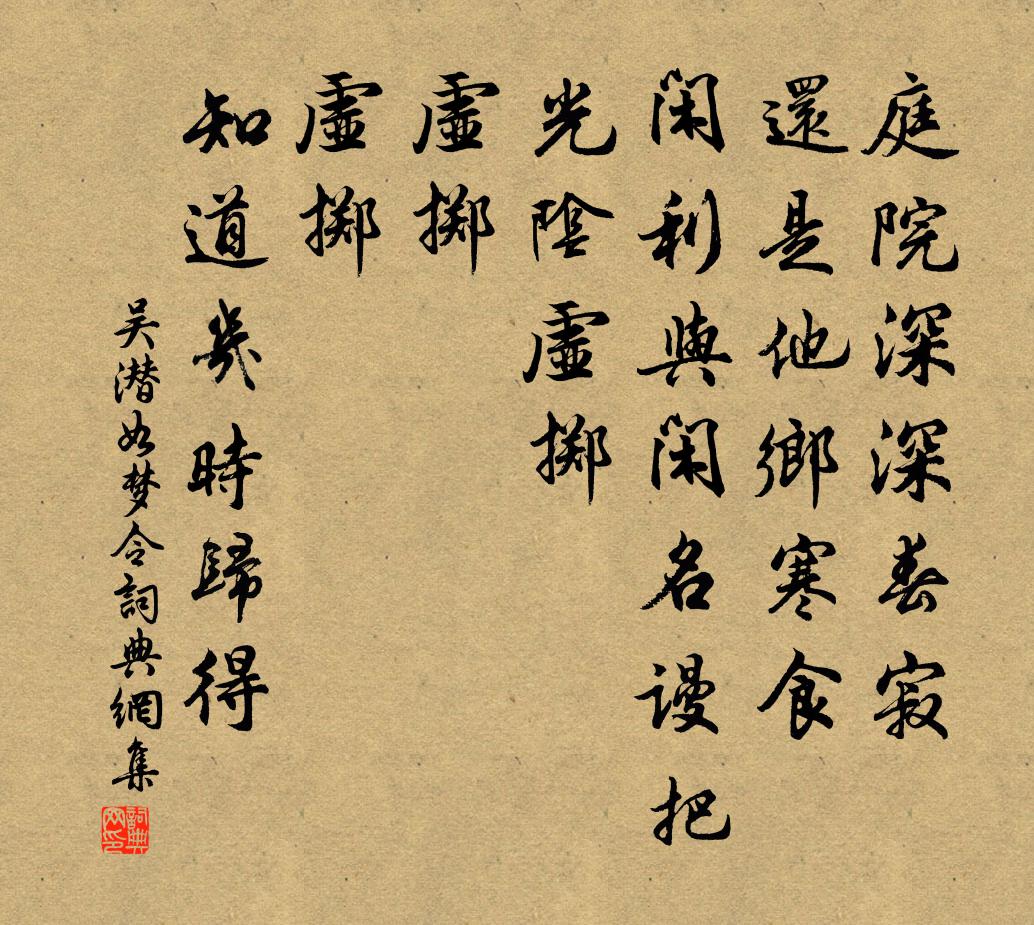 庭院深深春寂
還是他鄉寒食
閑利與閑名謾把
光陰虛擲
虛擲
虛擲
知道幾時歸得
吴潜如梦令詞典網集
詞典网印